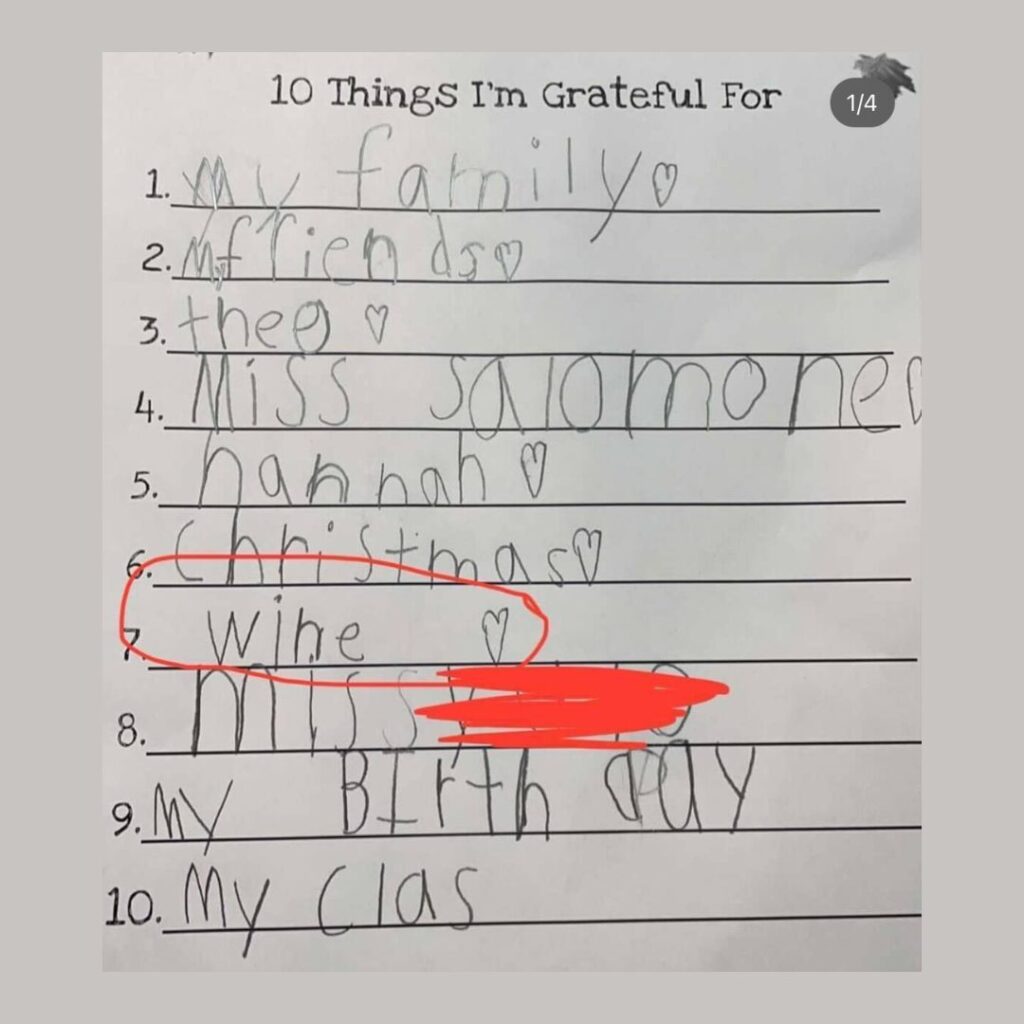 10 Things I'm Grateful For
1/4
1. My family
2. My friends
3. theo
4. Miss Salomone
5. hannah
6. Christmas
7. wine
8. miss
9. My BIrth day
10. My Clas